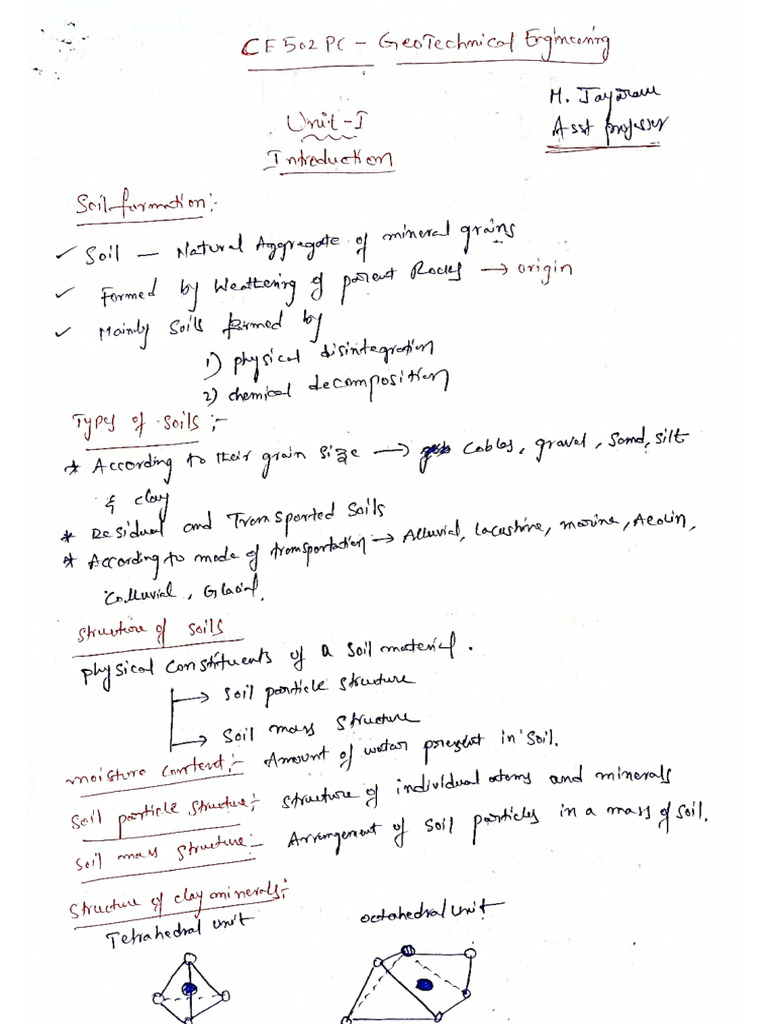 CE502PC - GeoTechnical Engineering
M. Jayaram
Asst professer
Unit-I
Introduction
Soil formation:-
✓ Soil — Natural Aggregate of mineral grains
✓ Formed by Weathering of parent Rocks → origin
✓ Mainly Soils formed by
1) physical disintegration
2) chemical decomposition
Types of soils :-
* According to their grain size → Cobles, gravel, Sand, silt
& clay
* Residual and Transported Soils
* According to mode of transportation → Alluvial, lacustrine, marine, Aeolin,
Colluvial, Glacial.
Structure of soils
physical constituents of a soil material.
→ Soil particle structure
→ Soil mass structure
moisture content:- Amount of water present in soil.
Soil particle structure:- structure of individual atoms and minerals
Soil mass structure:- Arrangement of soil particles in a mass of soil.
Structure of clay minerals:-
Tetrahedral unit octahedral unit